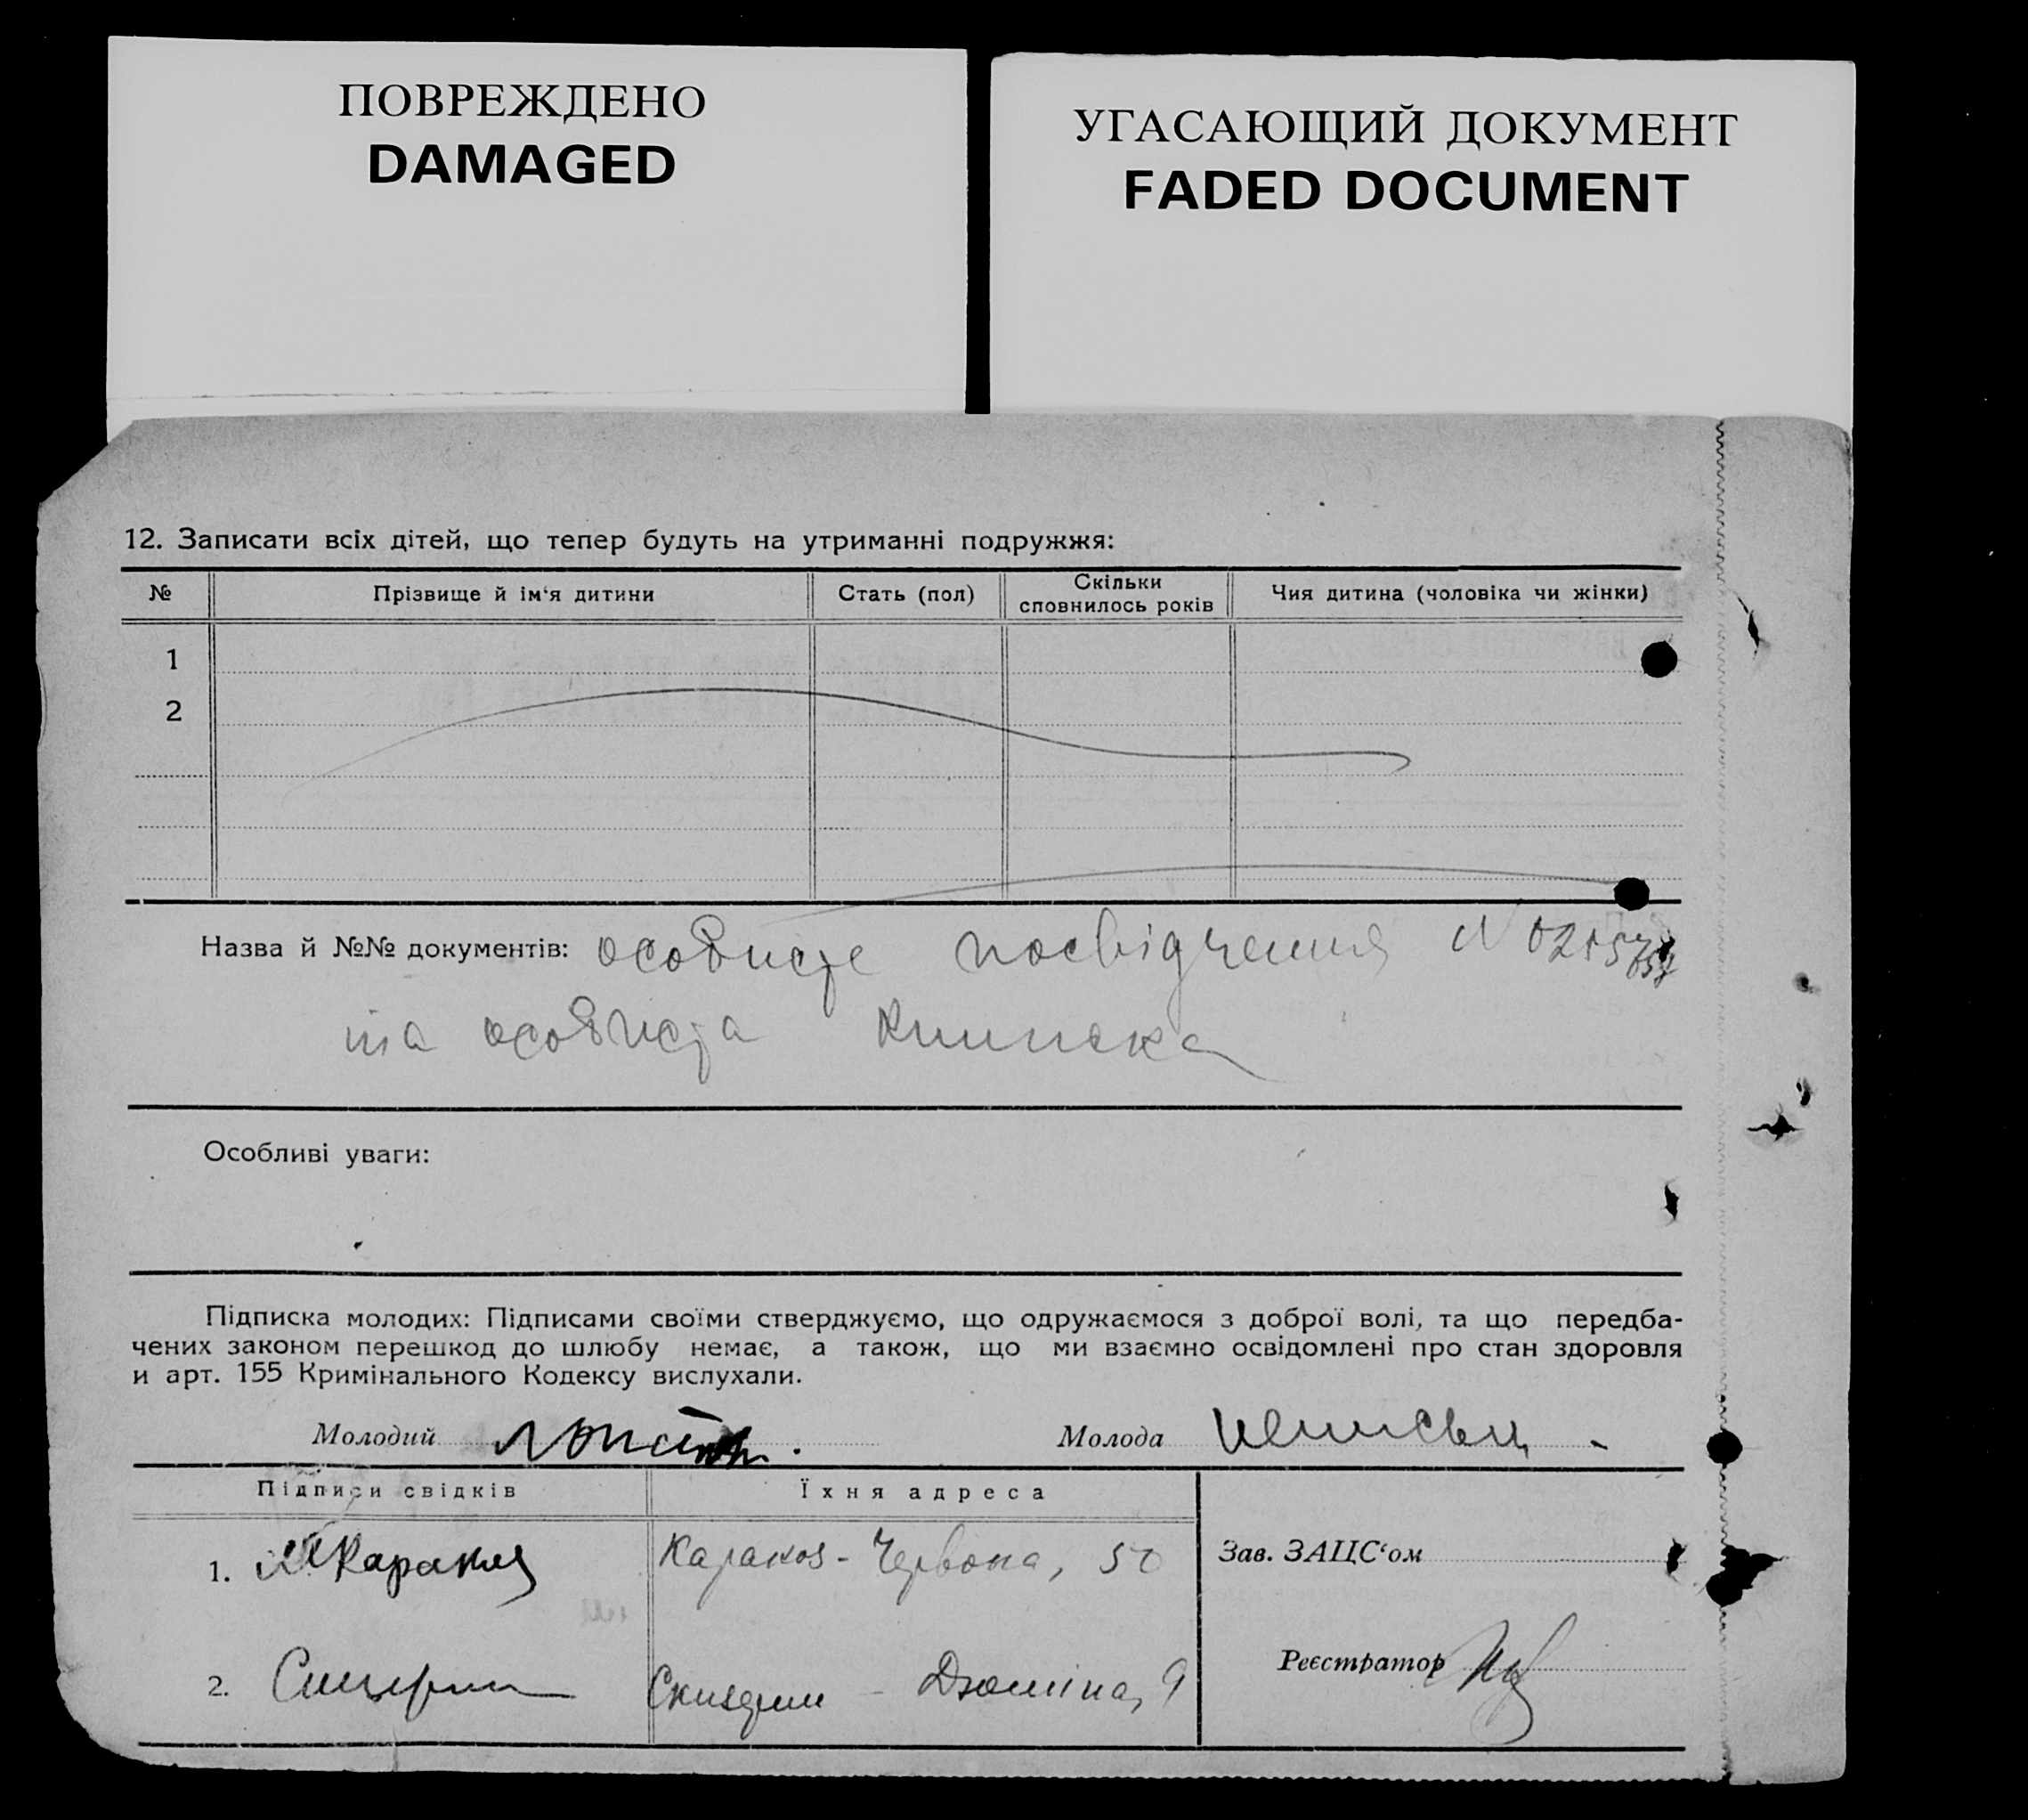 ПОВРЕЖДЕНО
DAMAGED
УГАСАЮЩИЙ ДОКУМЕНТ
FADED DOCUMENT
12. Записати всіх дітей, що тепер будуть на утриманні подружжя:
№ Прізвище й ім‘я дитини Стать (пол) Скільки сповнилось років Чия дитина (чоловіка чи жінки)
1
2
Назва й №№ документів: особисте посвідчення N
та особиста книжка
Особливі уваги:
Підписка молодих: Підписами своїми стверджуємо, що одружаємося з доброї волі, та що передба-
чених законом перешкод до шлюбу немає, а також, що ми взаємно освідомлені про стан здоровля
и арт. 155 Кримінального Кодексу вислухали.
Молодий Молода
Підписи свідків Їхня адреса
1. Червона, 50 Зав. ЗАЦС‘ом
2. 9 Реєстратор